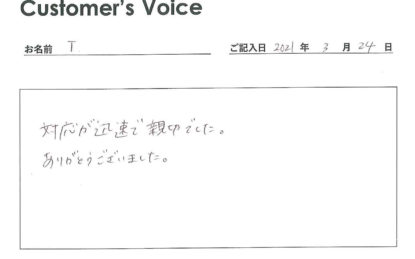 Customer's Voice
お名前 T ご記入日 2021 年 3 月 24 日
対応が迅速で親切でした。
ありがとうございました。